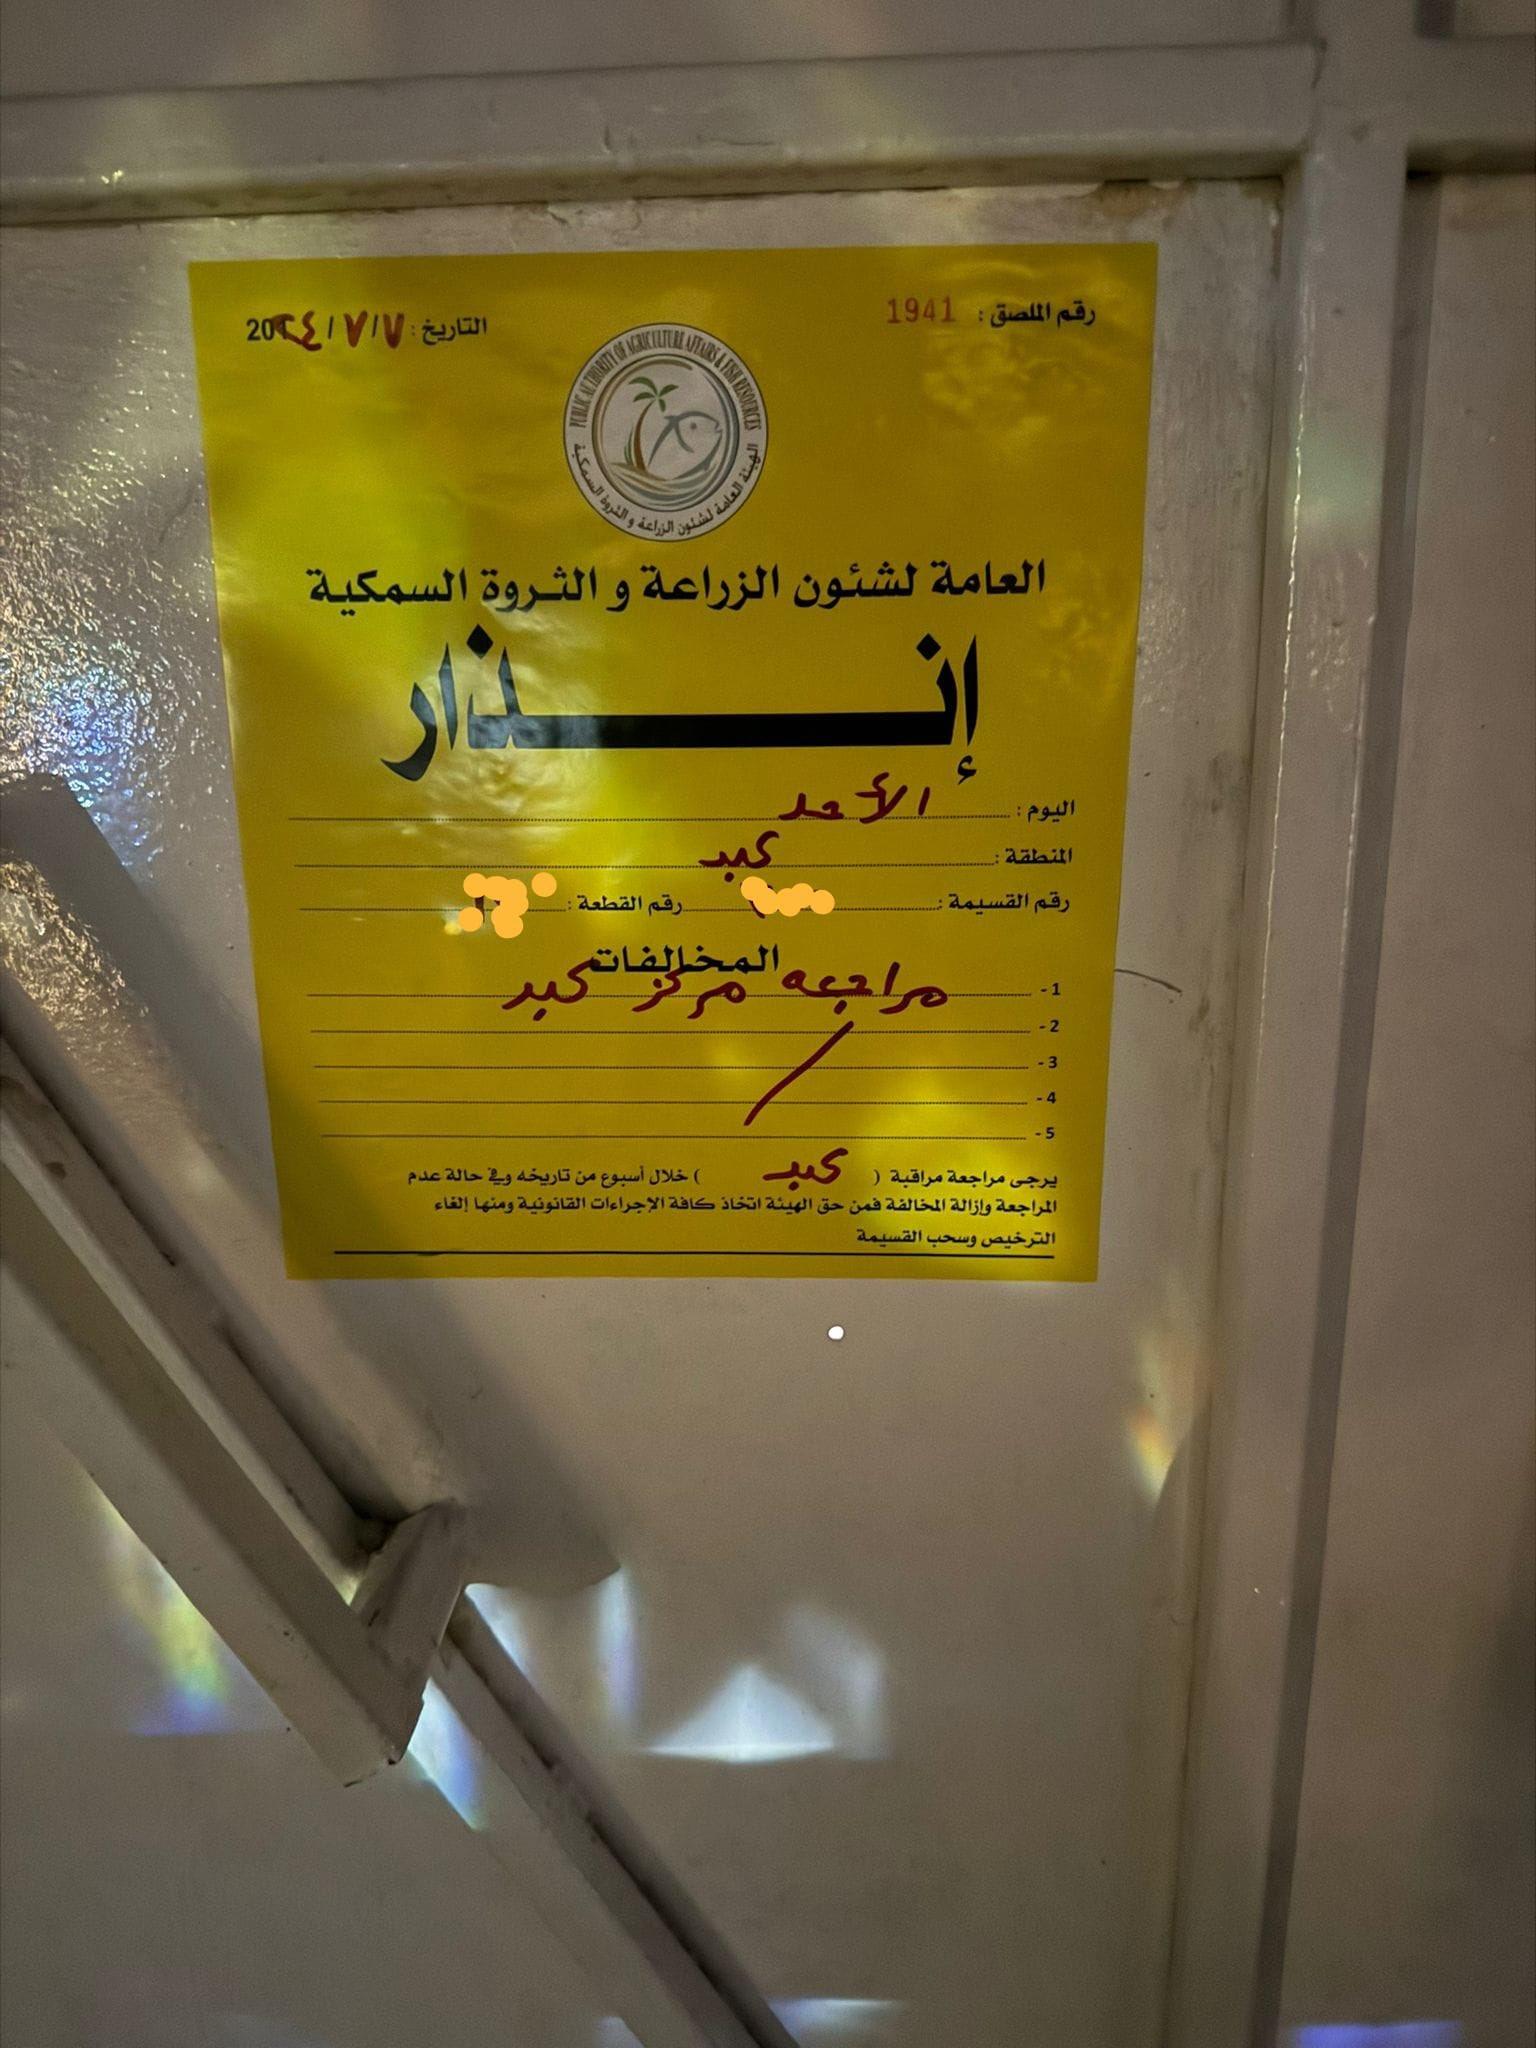 رقم الملصق : 1941
التاريخ : ٧ / ٧ / 20٢٤
PUBLIC AUTHORITY OF AGRICULTURE AFFAIRS & FISH RESOURCES
الهيئة العامة لشئون الزراعة و الثروة السمكية
العامة لشئون الزراعة و الثروة السمكية
إنـــذار
اليوم : الأحد
المنطقة : كبد
رقم القسيمة : رقم القطعة :
المخالفات
1- مراجعه مركز كبد
2-
3-
4-
5-
يرجى مراجعة مراقبة ( كبد ) خلال أسبوع من تاريخه وفي حالة عدم
المراجعة وإزالة المخالفة فمن حق الهيئة اتخاذ كافة الإجراءات القانونية ومنها إلغاء
الترخيص وسحب القسيمة